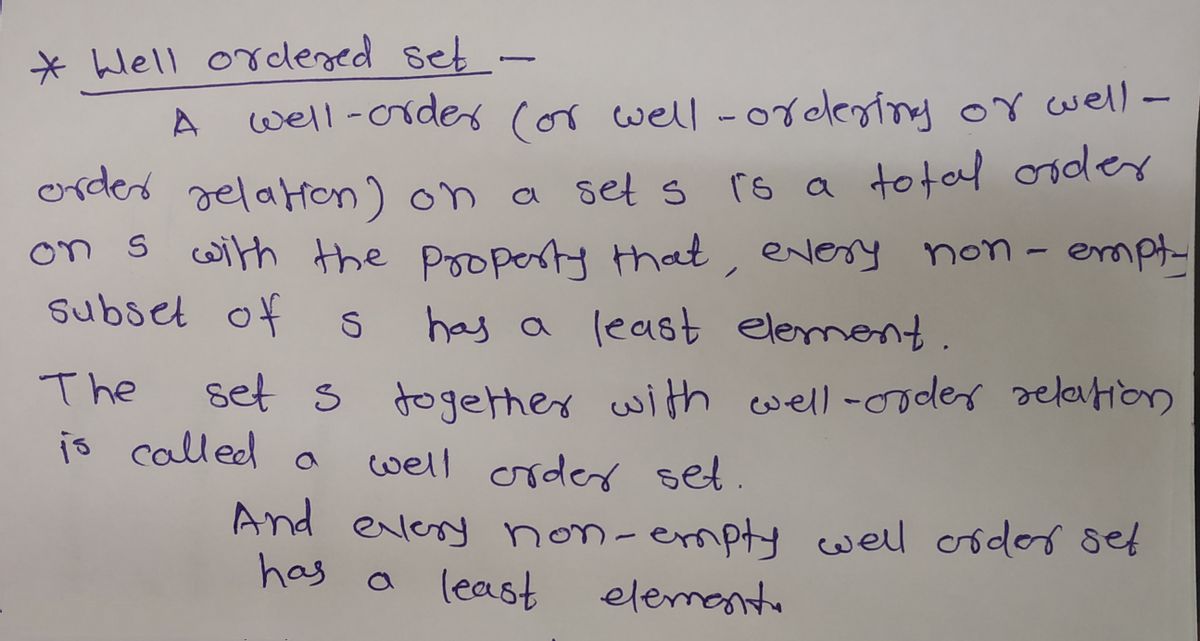 * Well ordered set –
A well-order (or well-ordering or well-
order relation) on a set s is a total order
on s with the property that, every non-empty
subset of s has a least element.
The set s together with well-order relation
is called a well order set.
And every non-empty well order set
has a least element.